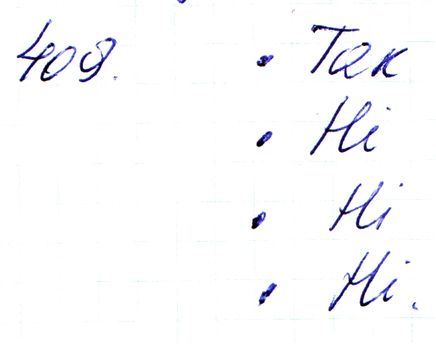 409. • Так
• Ні
• Ні
• Ні.